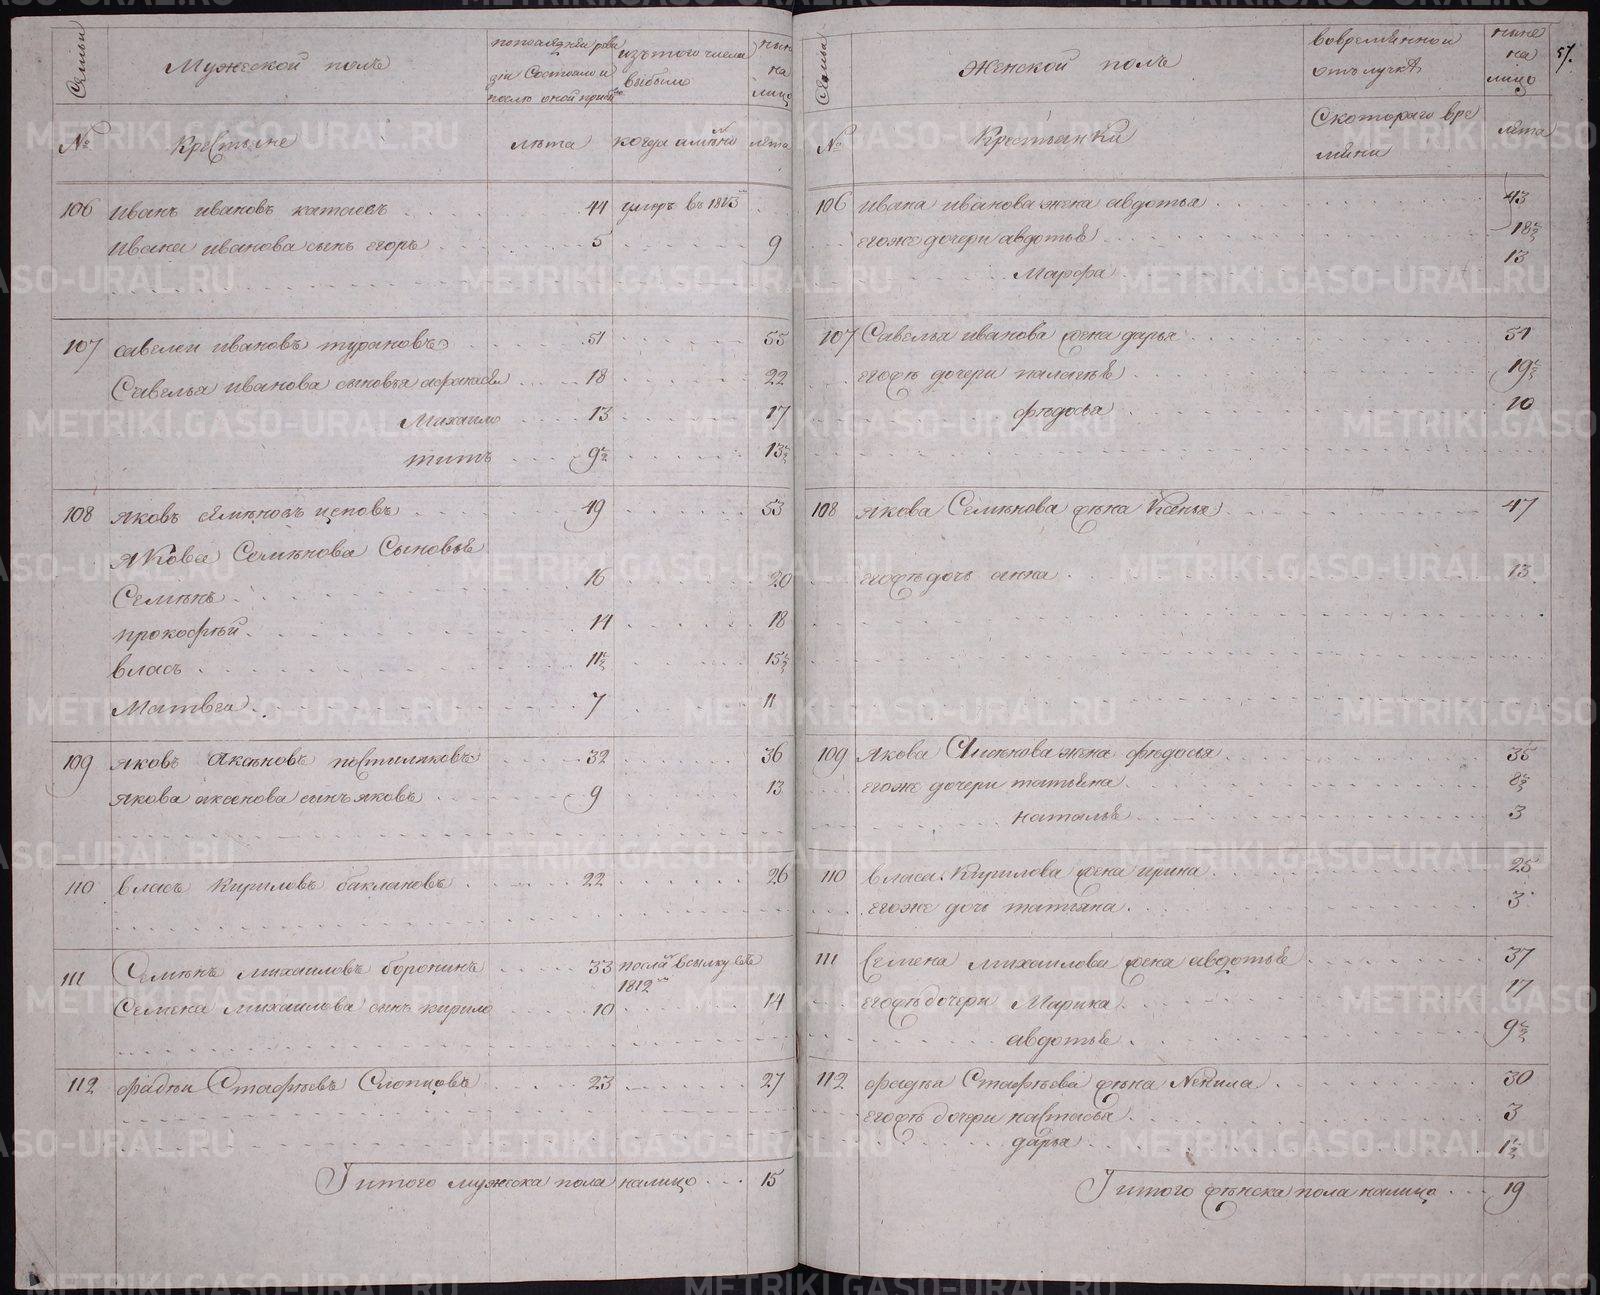 Семьи
Мужеской полъ
по последней реви
зіи состояло и
после оной прибы
изъ того числа
выбыло
ныне
на
лицо
№
Крестьяне
лета
когда именно
лета
106 Иванъ ивановъ катаевъ 44 умеръ въ 1813
Ивана иванова сынъ егоръ 5 9
107 савелеи ивановъ турановъ 51 55
Савелья иванова сыновья афанасеи 18 22
Михаило 13 17
титъ 9½ 13½
108 яковъ семеновъ цеповъ 49 53
якова Семенова Сыновье
Семенъ 16 20
прокофеи 14 18
власъ 11½ 15½
Матвеи 7 11
109 яковъ аксеновъ постниковъ 32 36
якова аксенова сынъ яковъ 9 13
110 власъ Кириловъ баклановъ 22 26
111 Семенъ михаиловъ боронинъ 33 посланъ в ссылку въ
1812
Семена михаилова сынъ кирило 10 14
112 фадеи Стафеевъ Слопцовъ 23 27
И итого мужеска пола налицо 15
Семьи
Женской полъ
во временной
отлучке
ныне
на
лицо
57.
№
Крестьянки
С котораго вре
мени
лета
106 ивана иванова жена авдотья 43
егоже дочери авдотья 18½
Марфа 13
107 Савелья иванова жена дарья 51
егоже дочери палагея 19½
федосья 10
108 якова Семенова жена Ксенья 47
егоже дочь анна 13
109 якова Аксенова жена федосья 35
егоже дочери татьяна 8½
наталья 3
110 власа Кирилова жена ирина 25
егоже дочь татьяна 3
111 Семена михаилова жена авдотья 37
егоже дочери Марина 17
авдотья 9½
112 фадея Стафеева жена Ненила 30
егоже дочери настасья 3
дарья 1½
И итого женска пола налицо 19
METRIKI.GASO-URAL.RU